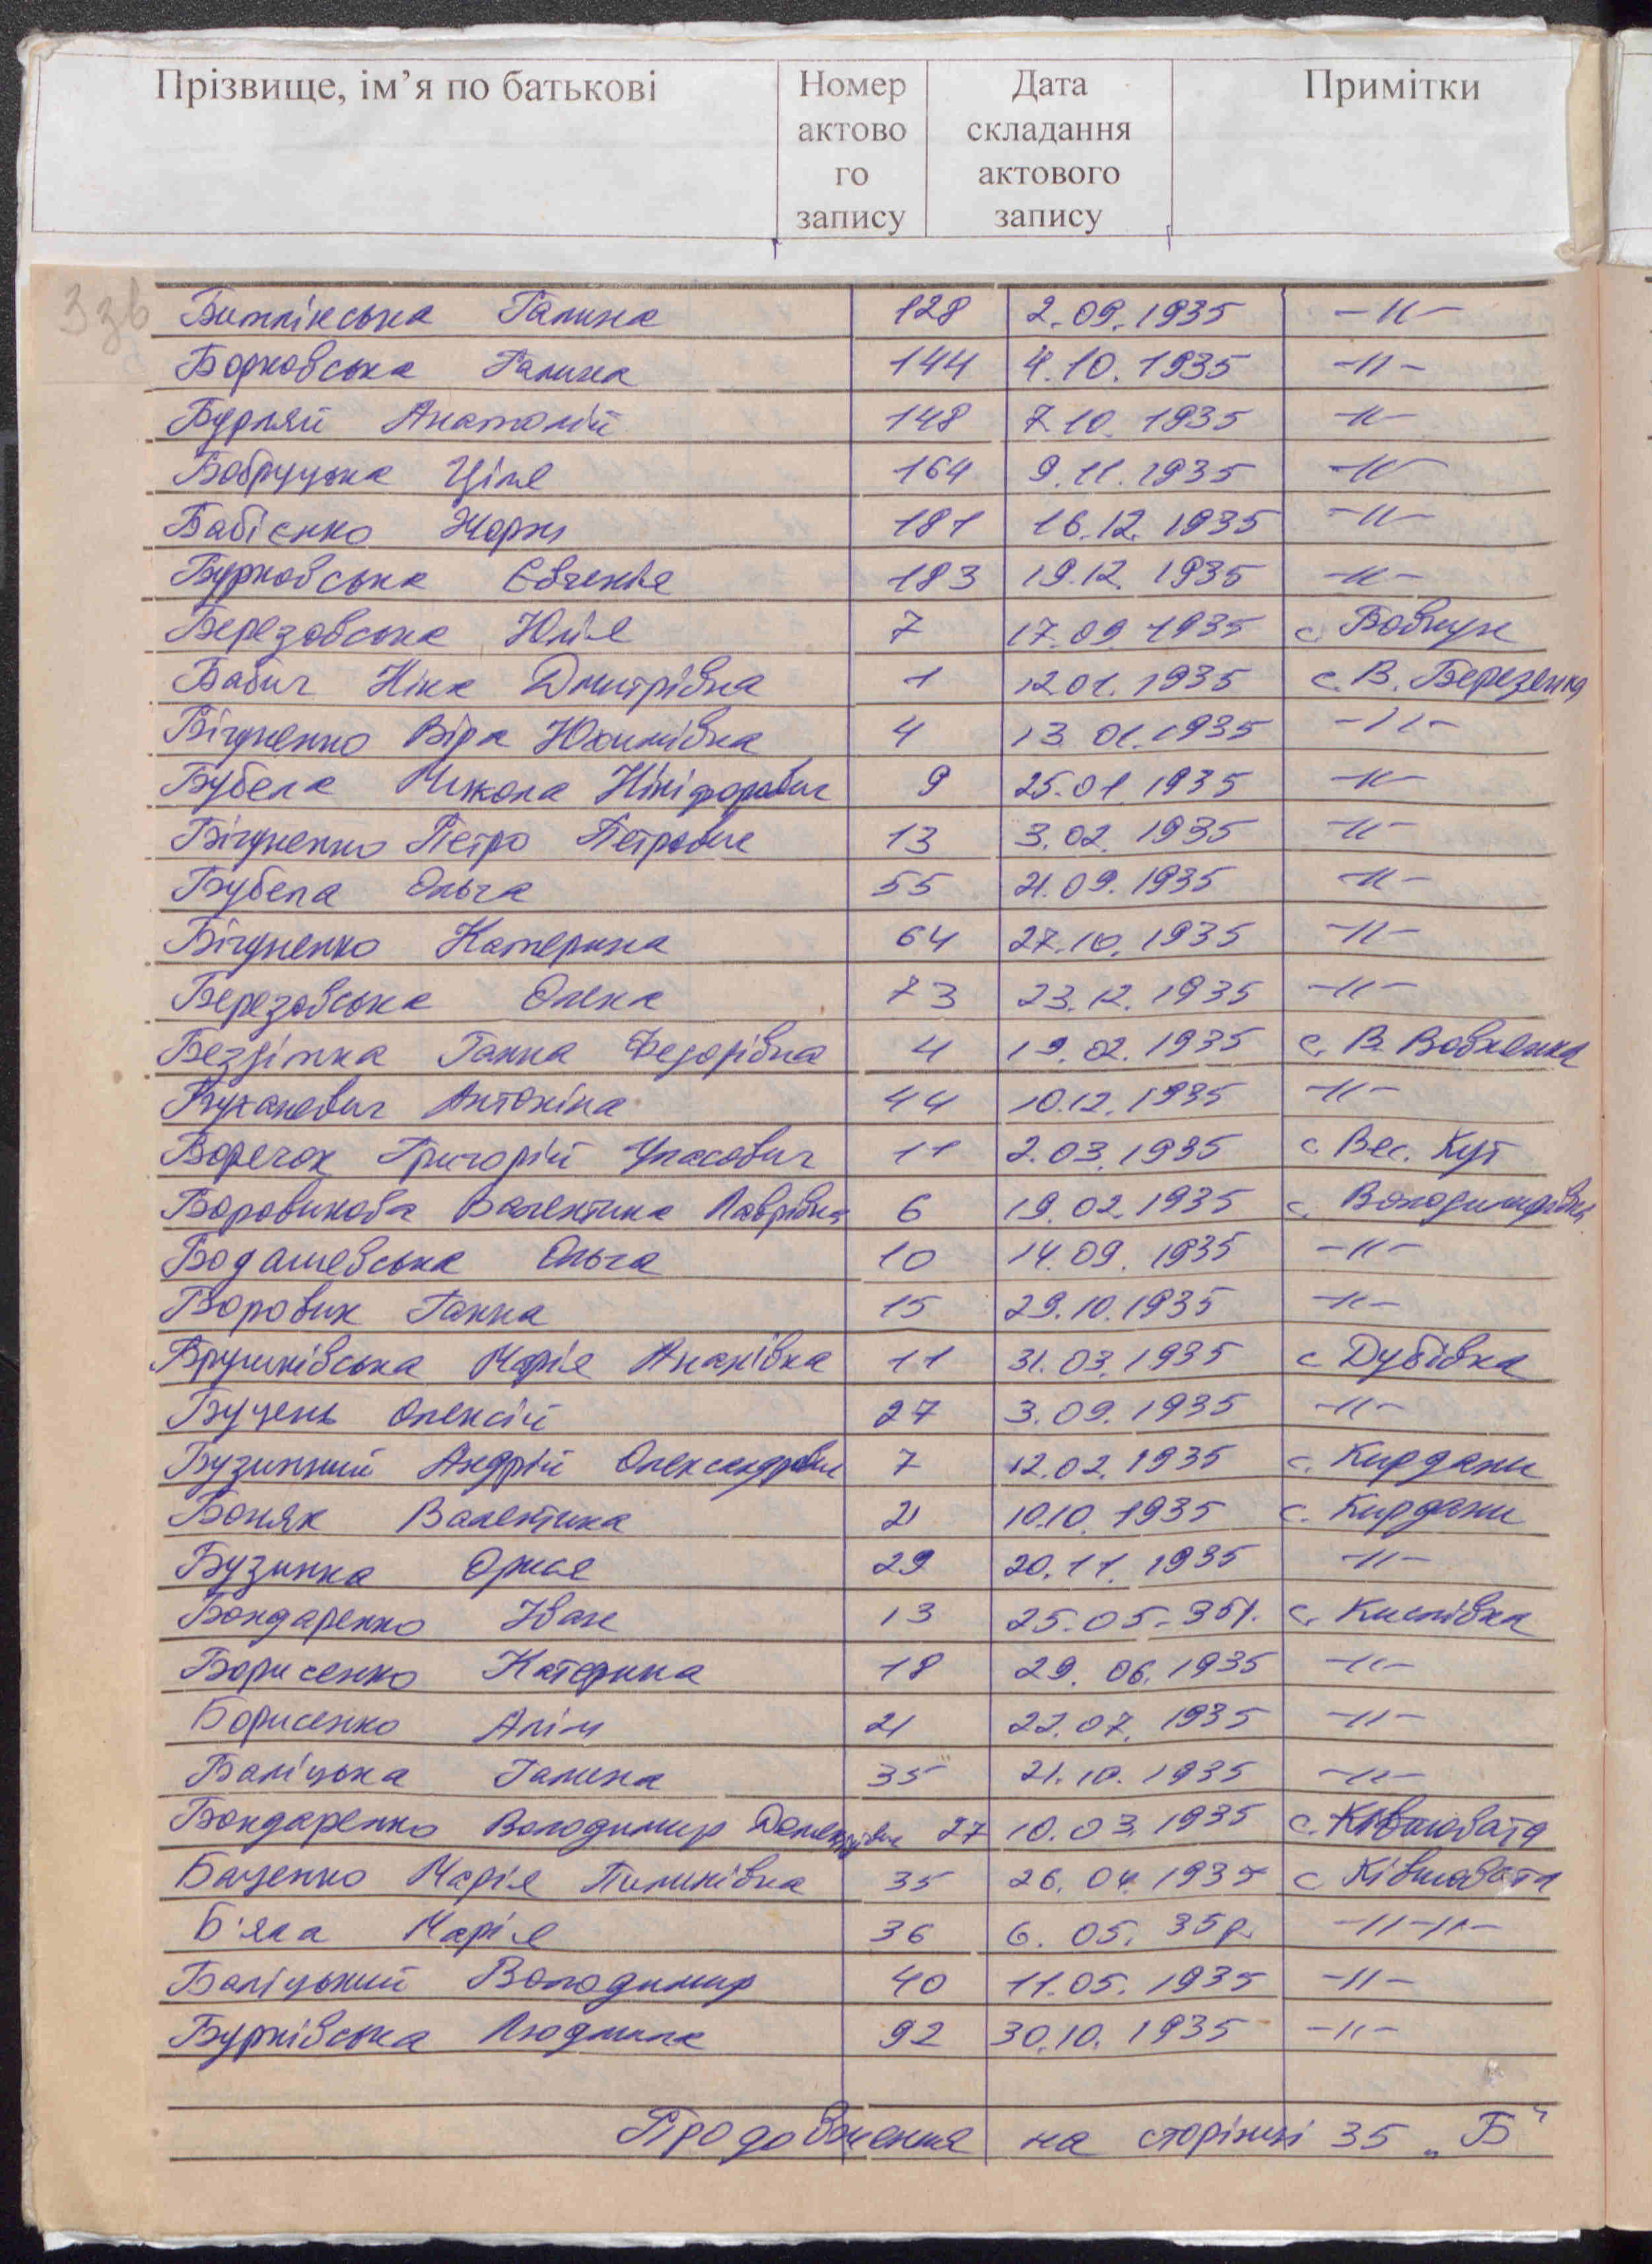 Прізвище, ім’я по батькові
Номер актово го запису
Дата складання актового запису
Примітки
3 зв
Битлінська Галина 128 2.09.1935 -//-
Борковська Галина 144 4.10.1935 -//-
Бурляй Анатолій 148 7.10.1935 -//-
Бобруцька Ціля 164 9.11.1935 -//-
Бабієнко Жорж 181 16.12.1935 -//-
Бурковська Євгенія 183 19.12.1935 -//-
Березовська Юлія 7 17.09.1935 с.
Бабич Ніна Дмитрівна 1 12.01.1935 с. В. Березянка
Бігуненко Віра Юхимівна 4 13.01.1935 -//-
Бубела Микола Нікіфорович 9 25.01.1935 -//-
Бігуненко Петро Петрович 13 3.02.1935 -//-
Бубела Ольга 55 21.09.1935 -//-
Бігуненко Катерина 64 27.10.1935 -//-
Березовська Олена 73 23.12.1935 -//-
Бездітна Ганна Федорівна 4 19.02.1935 с. В. Вовнянка
Антоніна 44 10.12.1935 -//-
Григорій Уласович 11 2.03.1935 с. Вес. Кут
Боровикова Валентина Лаврівна 6 19.02.1935 с. Володимирівка
Бодашевська Ольга 10 14.09.1935 -//-
Боровик Ганна 15 29.10.1935 -//-
Брушківська Марія Ананівна 11 31.03.1935 с. Дубівка
Буцень Олексій 27 3.09.1935 -//-
Бузинний Андрій Олександрович 7 12.02.1935 с. Кирдани
Боняк Валентина 21 10.10.1935 с. Кирдани
Бузинна Орися 29 20.11.1935 -//-
Бондаренко Іван 13 25.05.35р. с. Кислівка
Борисенко Катерина 18 29.06.1935 -//-
Борисенко Алім 21 22.07.1935 -//-
Баліцька Галина 35 21.10.1935 -//-
Бондаренко Володимир 27 10.03.1935 с. Ківшовата
Баценко Марія Пилипівна 35 26.04.1935 с. Ківшовата
Б'яла Марія 36 6.05.35р. -//-//-
Баліцький Володимир 40 11.05.1935 -//-
Бурківська Людмила 92 30.10.1935 -//-
Продовження на сторінці 35 „Б"